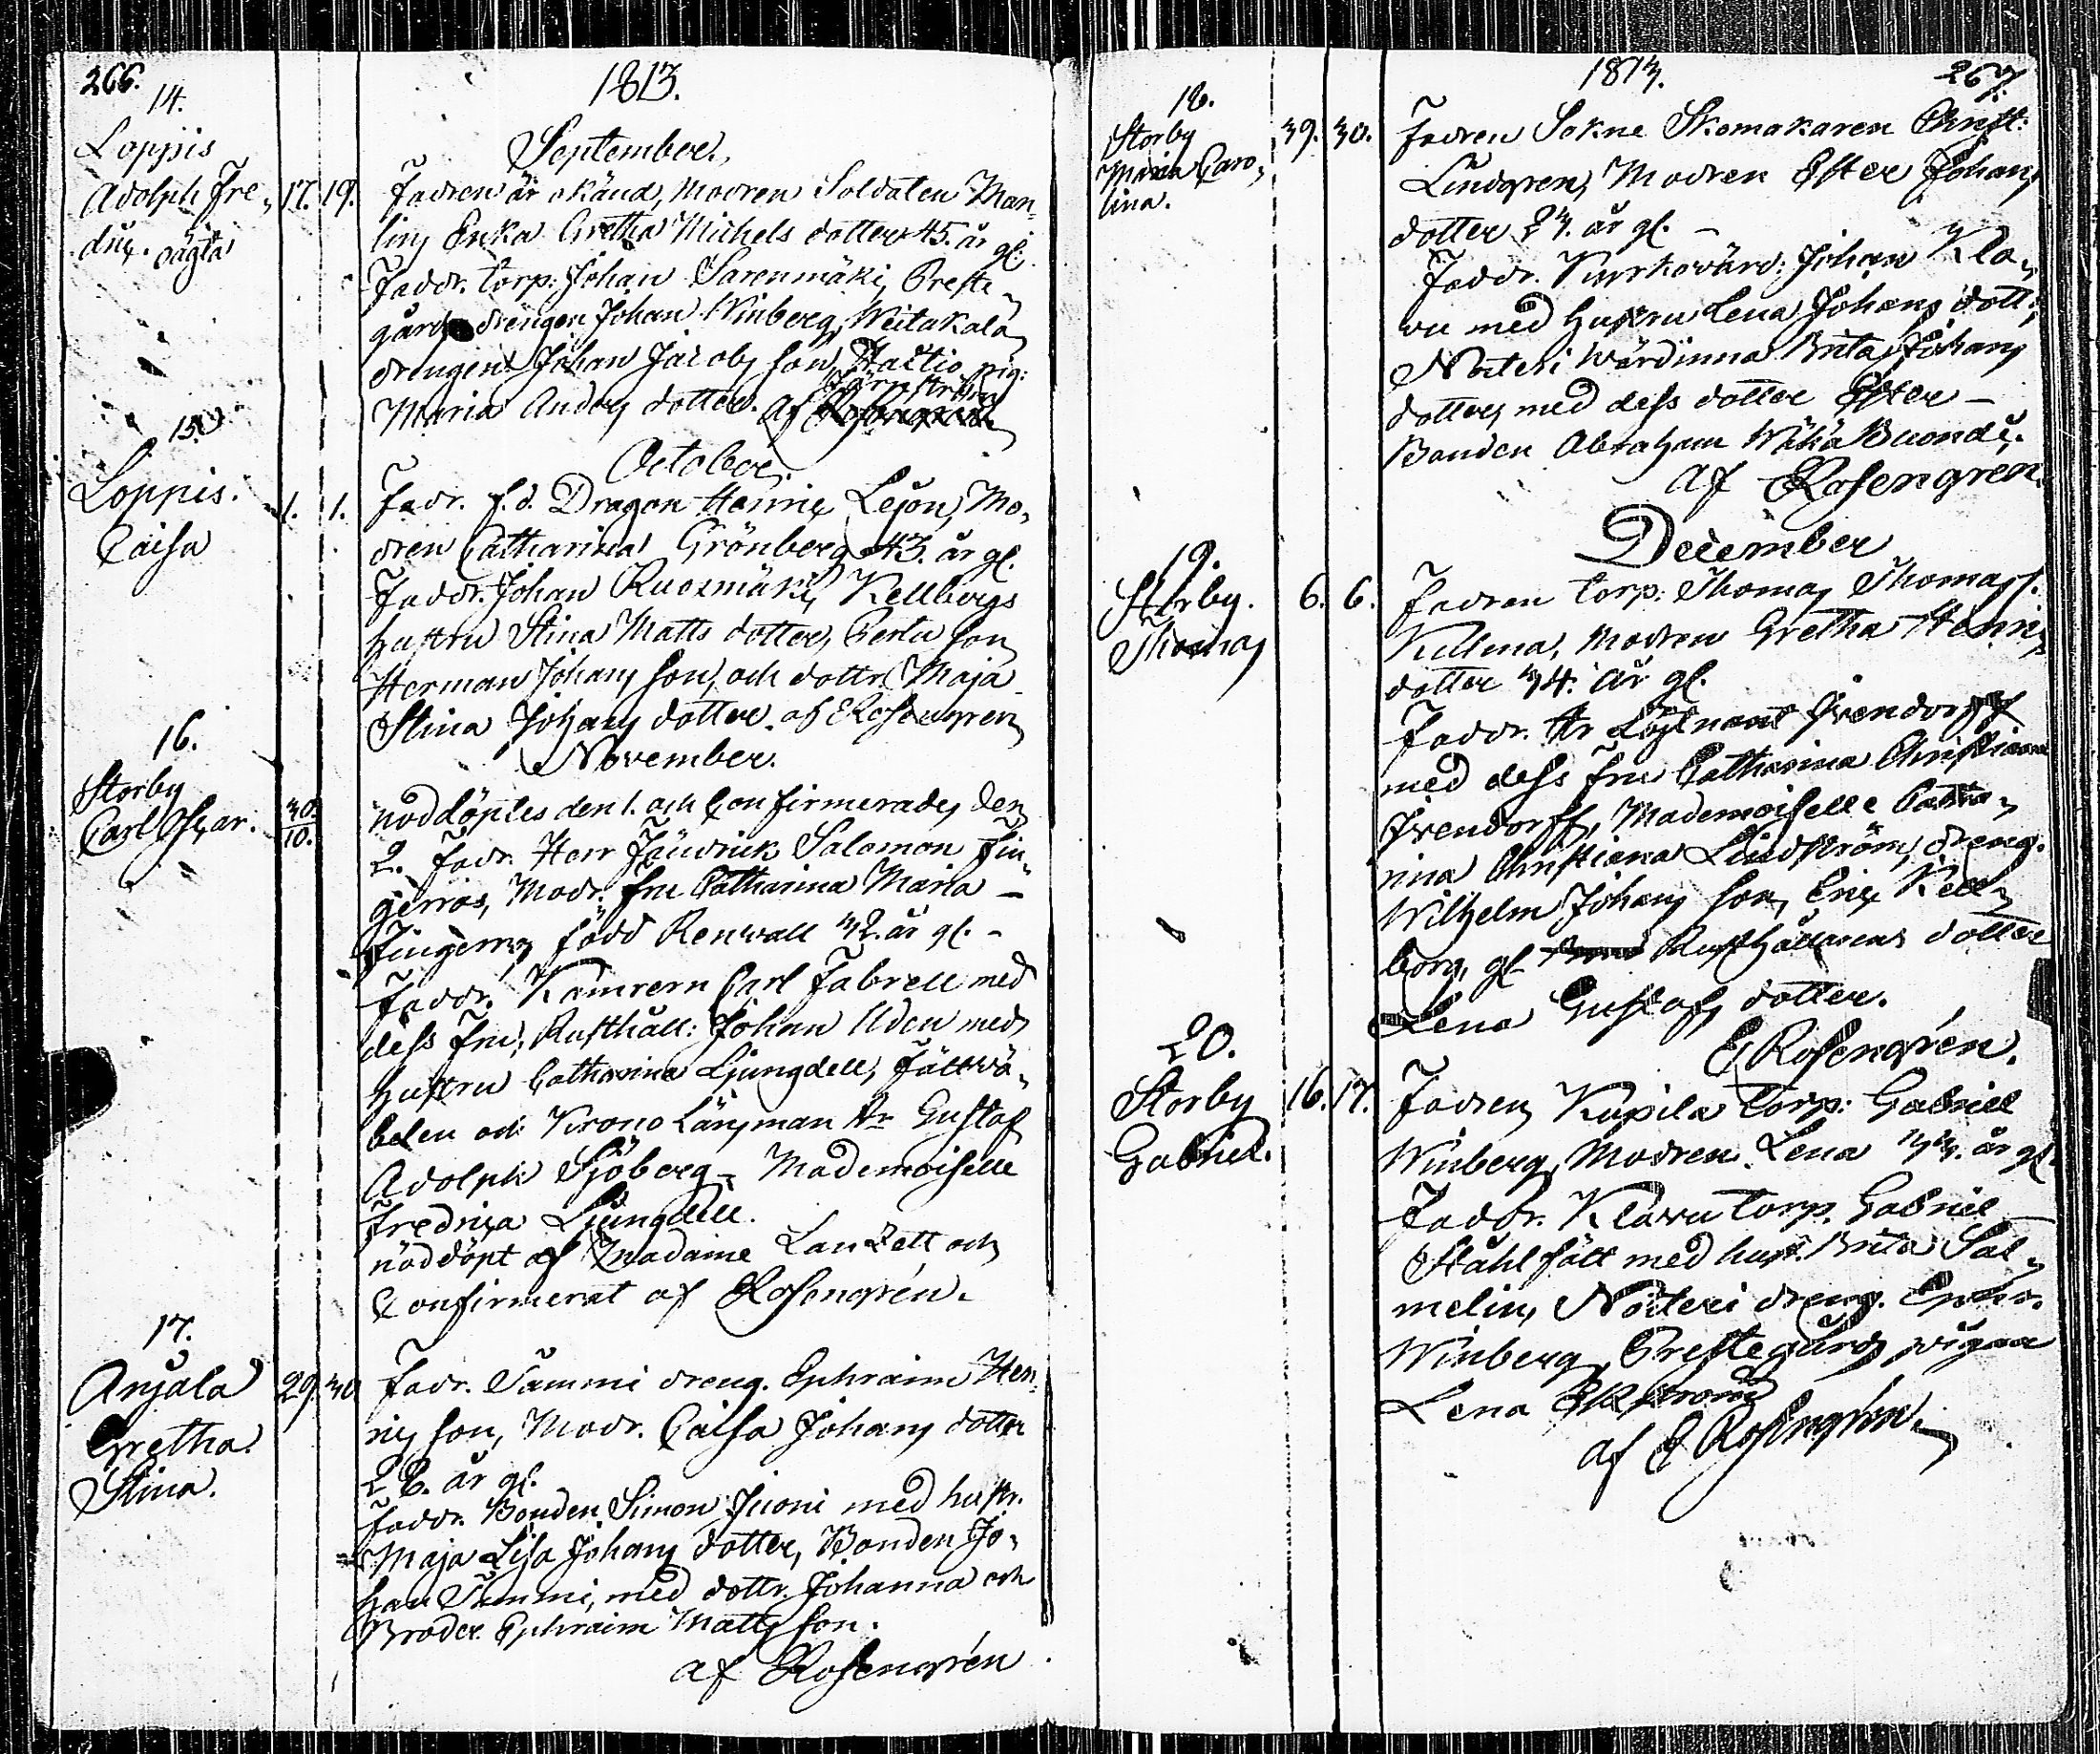 266.
1813.
14.
Loppis
Adolph Fre-
dric. oägta
17. 19.
September.
Fadren är okänd, Modren Soldaten Man-
lins Enka Gretha Michels dotter 45. år gl.
Faddr. torp: Johan Sarenmäki, Preste-
gårds drengen Johan Winberg, Weitakala
drengen Johan Jacobs son, Hactio pig:
Maria Anders dotter. af Bärnström
15.
Loppis.
Caisa
1. 1.
October.
Fadr. f.d. Dragon Henric Lejon, Mo-
dren Catharina Grönberg 43. år gl.
Faddr. Johan Ruosmäki, Kellbergs
hustru Stina Matts dotter, son
Herman Johans son, och dottr. Maja
Stina Johans dotter. af E Rosengren
16.
Storby
Carl Oscar.
30.
10.
November.
nöddöptes den 1. och Confirmerades den
2. Fadr. Herr Fändrick Salomon Fin-
gerroos, Modr. Fru Catharina Maria
Fingerros född Renvall 32. år gl.
Faddr. Kamrern Carl Fabrell med
dess Fru, Rusthåll: Johan Uden med
hustru Catharina Ljungdell, Fältwä-
belen och Krono Länsman Hr Gustaf
Adolph Sjöberg, Mademoiselle
Fredrica Ljungdell.
nöddöpt af Madame Lanzett och
Confirmerat af Rosengrén.
17.
Anjala
Gretha
Stina.
29. 30
Fadr. Tammi dreng. Ephraim Hen-
rics son, Modr. Caisa Johans dotter
26. år gl.
Faddr. Bonden Simon Juoni med hustr.
Maja Lisa Johans dotter, Bonden Jo-
han Tammi, med dottr. Johanna och
Broder Ephraim Matts son.
af Rosengrén
1813.
267.
18.
Storby
Maria Caro-
lina.
29. 30.
Fadren Sokne Skomakaren Christ:
Lindgren, Modren Ester Johans
dotter 27. år gl.
Faddr. Kyrkovärd: Johan Kla-
vu med hustru Lena Johans dott:
Noiteri Wärdinna Brita Johans
dotter, med dess dotter Ester
Bonden Abraham Wähä Buondi.
af Rosengren.
19.
Storby.
Thomas
6. 6.
December
Fadren torp: Thomas Thomass.
Killma, Modren Gretha Henrics
dotter 34. år gl.
Faddr. Hr Löjtnant Ivendorff
med dess Fru Catharina Christiana
Ivendorff, Mademoiselle Catha-
rina Christiana Lindström, dreng.
Wilhelm Johans son, Eric Kell-
borg, gl. Rusthållarens dotter
Lena Gustafs dotter.
E Rosengrén.
20.
Storby
Gabriel.
16. 17.
Fadren Kupila torp: Gabriel
Winberg, Modren Lena 33. år gl.
Faddr. Klavu torp. Gabriel
Stahlfält med hust. Brita Sal-
melin, Noiteri dreng. Ephr.
Winberg, Prestegårds pigan
Lena Ekstrand
af E Rosengrén.